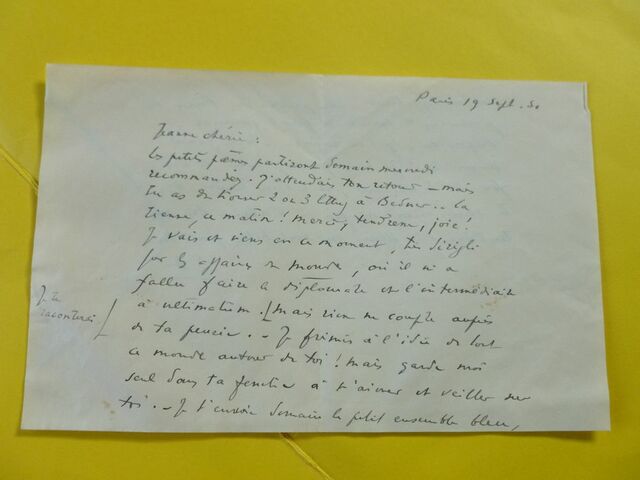 Paris 19 Sept. 50
Jeanne chérie :
les petits poèmes partiront demain mercredi
recommandés. J'attendais ton retour – mais
tu as dû trouver 2 ou 3 à .. La
tienne, ce matin ! merci, tendresse, joie !
Je vais et viens en ce moment,
par les affaires du monde, où il m'a
fallu faire le diplomate et l'intermédiaire
à ultimatum. [ mais rien ne compte auprès
Je te
raconterai
de ta pensée. – Je frémis à l'idée de tout
ce monde autour de toi ! mais garde moi
seul dans ta fonction à t'aimer et veiller sur
toi. – Je t'envoie demain le petit ensemble bleu,